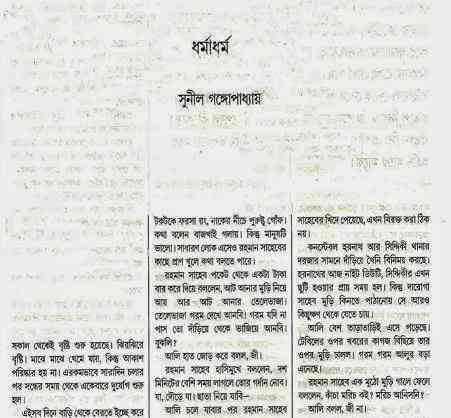 ধর্মাধর্ম
সুনীল গঙ্গোপাধ্যায়
সকাল থেকেই বৃষ্টি শুরু হয়েছে। ঝিরঝিরে
বৃষ্টি। মাঝে মাঝে থেমে যায়, কিন্তু আকাশ
পরিষ্কার হয় না। এরকমভাবে সারাদিন চলার
পর সন্ধের সময় থেকে একেবারে দুর্যোগ শুরু
হল।
এইসব দিনে বাড়ি থেকে বেরতে ইচ্ছে করে
টকটকে ফরসা রং, নাকের নীচে পুরুষ্টু গোঁফ।
কথা বলেন বাজখাঁই গলায়। কিন্তু মানুষটি
ভালো। সাধারণ লোক এসেও রহমান সাহেবের
কাছে প্রাণ খুলে কথা বলতে পারে।
রহমান সাহেব পকেট থেকে একটা টাকা
বার করে দিয়ে বললেন, আট আনার মুড়ি নিয়ে
আয় আর আট আনার তেলেভাজা।
তেলেভাজা গরম দেখে আনবি। গরম যদি না
পাস তো দাঁড়িয়ে থেকে ভাজিয়ে আনবি।
বুঝলি?
আলি হাত জোড় করে বলল, জী।
রহমান সাহেব হাসিমুখে বললেন, দশ
মিনিটের বেশি সময় লাগলে তোর গর্দান নোব।
যা, দৌড়ে যা। ছাতা নিয়ে যাবি—
আলি চলে যাবার পর রহমান সাহেব
সাহেবের খিদে পেয়েছে, এখন বিরক্ত করা ঠিক
নয়।
কনস্টেবল হরনাথ আর সিদ্দিকী থানার
দরজার সামনে দাঁড়িয়ে খৈনি বিনিময় করছে।
হরনাথের আজ নাইট ডিউটি, সিদ্দিকীর এখন
ছুটি হওয়ার প্রায় সময় হল। কিন্তু দারোগা
সাহেব মুড়ি কিনতে পাঠানোয় সে আরও
কিছুক্ষণ থেকে যেতে চায়।
আলি বেশ তাড়াতাড়িই এসে পড়েছে।
টেবিলের ওপর খবরের কাগজ বিছিয়ে তার
ওপর মুড়ি ঢালল। গরম গরম আলুর বড়া
এনেছে।
রহমান সাহেব এক মুঠো মুড়ি গালে ফেলে
বললেন, কাঁচা মরিচ কই? মরিচ আনিসনি?
আলি বলল, জী না।